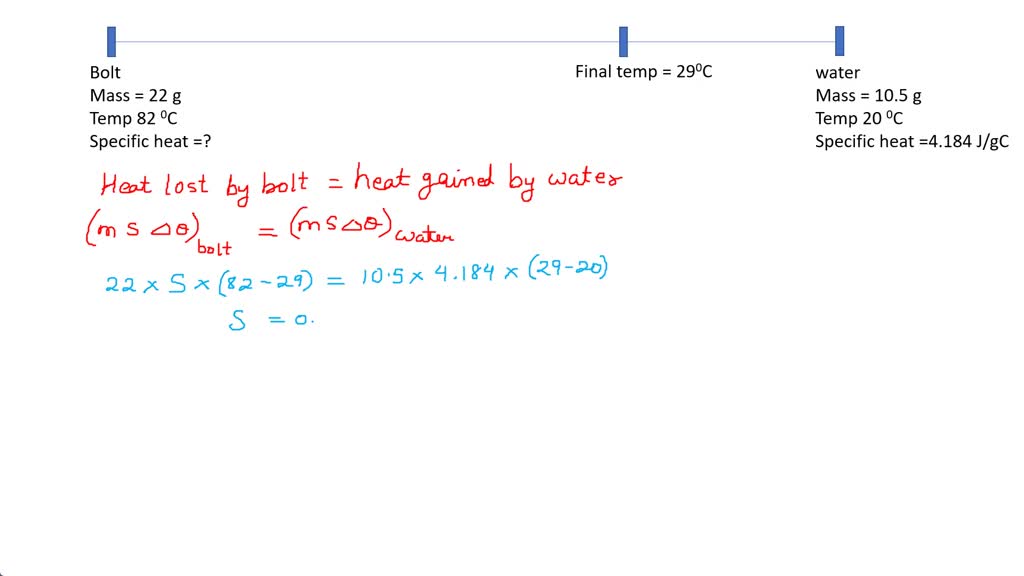 Bolt
Mass = 22 g
Temp 82 ⁰C
Specific heat =?
Final temp = 29⁰C
water
Mass = 10.5 g
Temp 20 ⁰C
Specific heat =4.184 J/gC
Heat lost by bolt = heat gained by water
(m s △θ)bolt = (m s △θ)water
22 × S × (82 - 29) = 10.5 × 4.184 × (29-20)
S = 0.